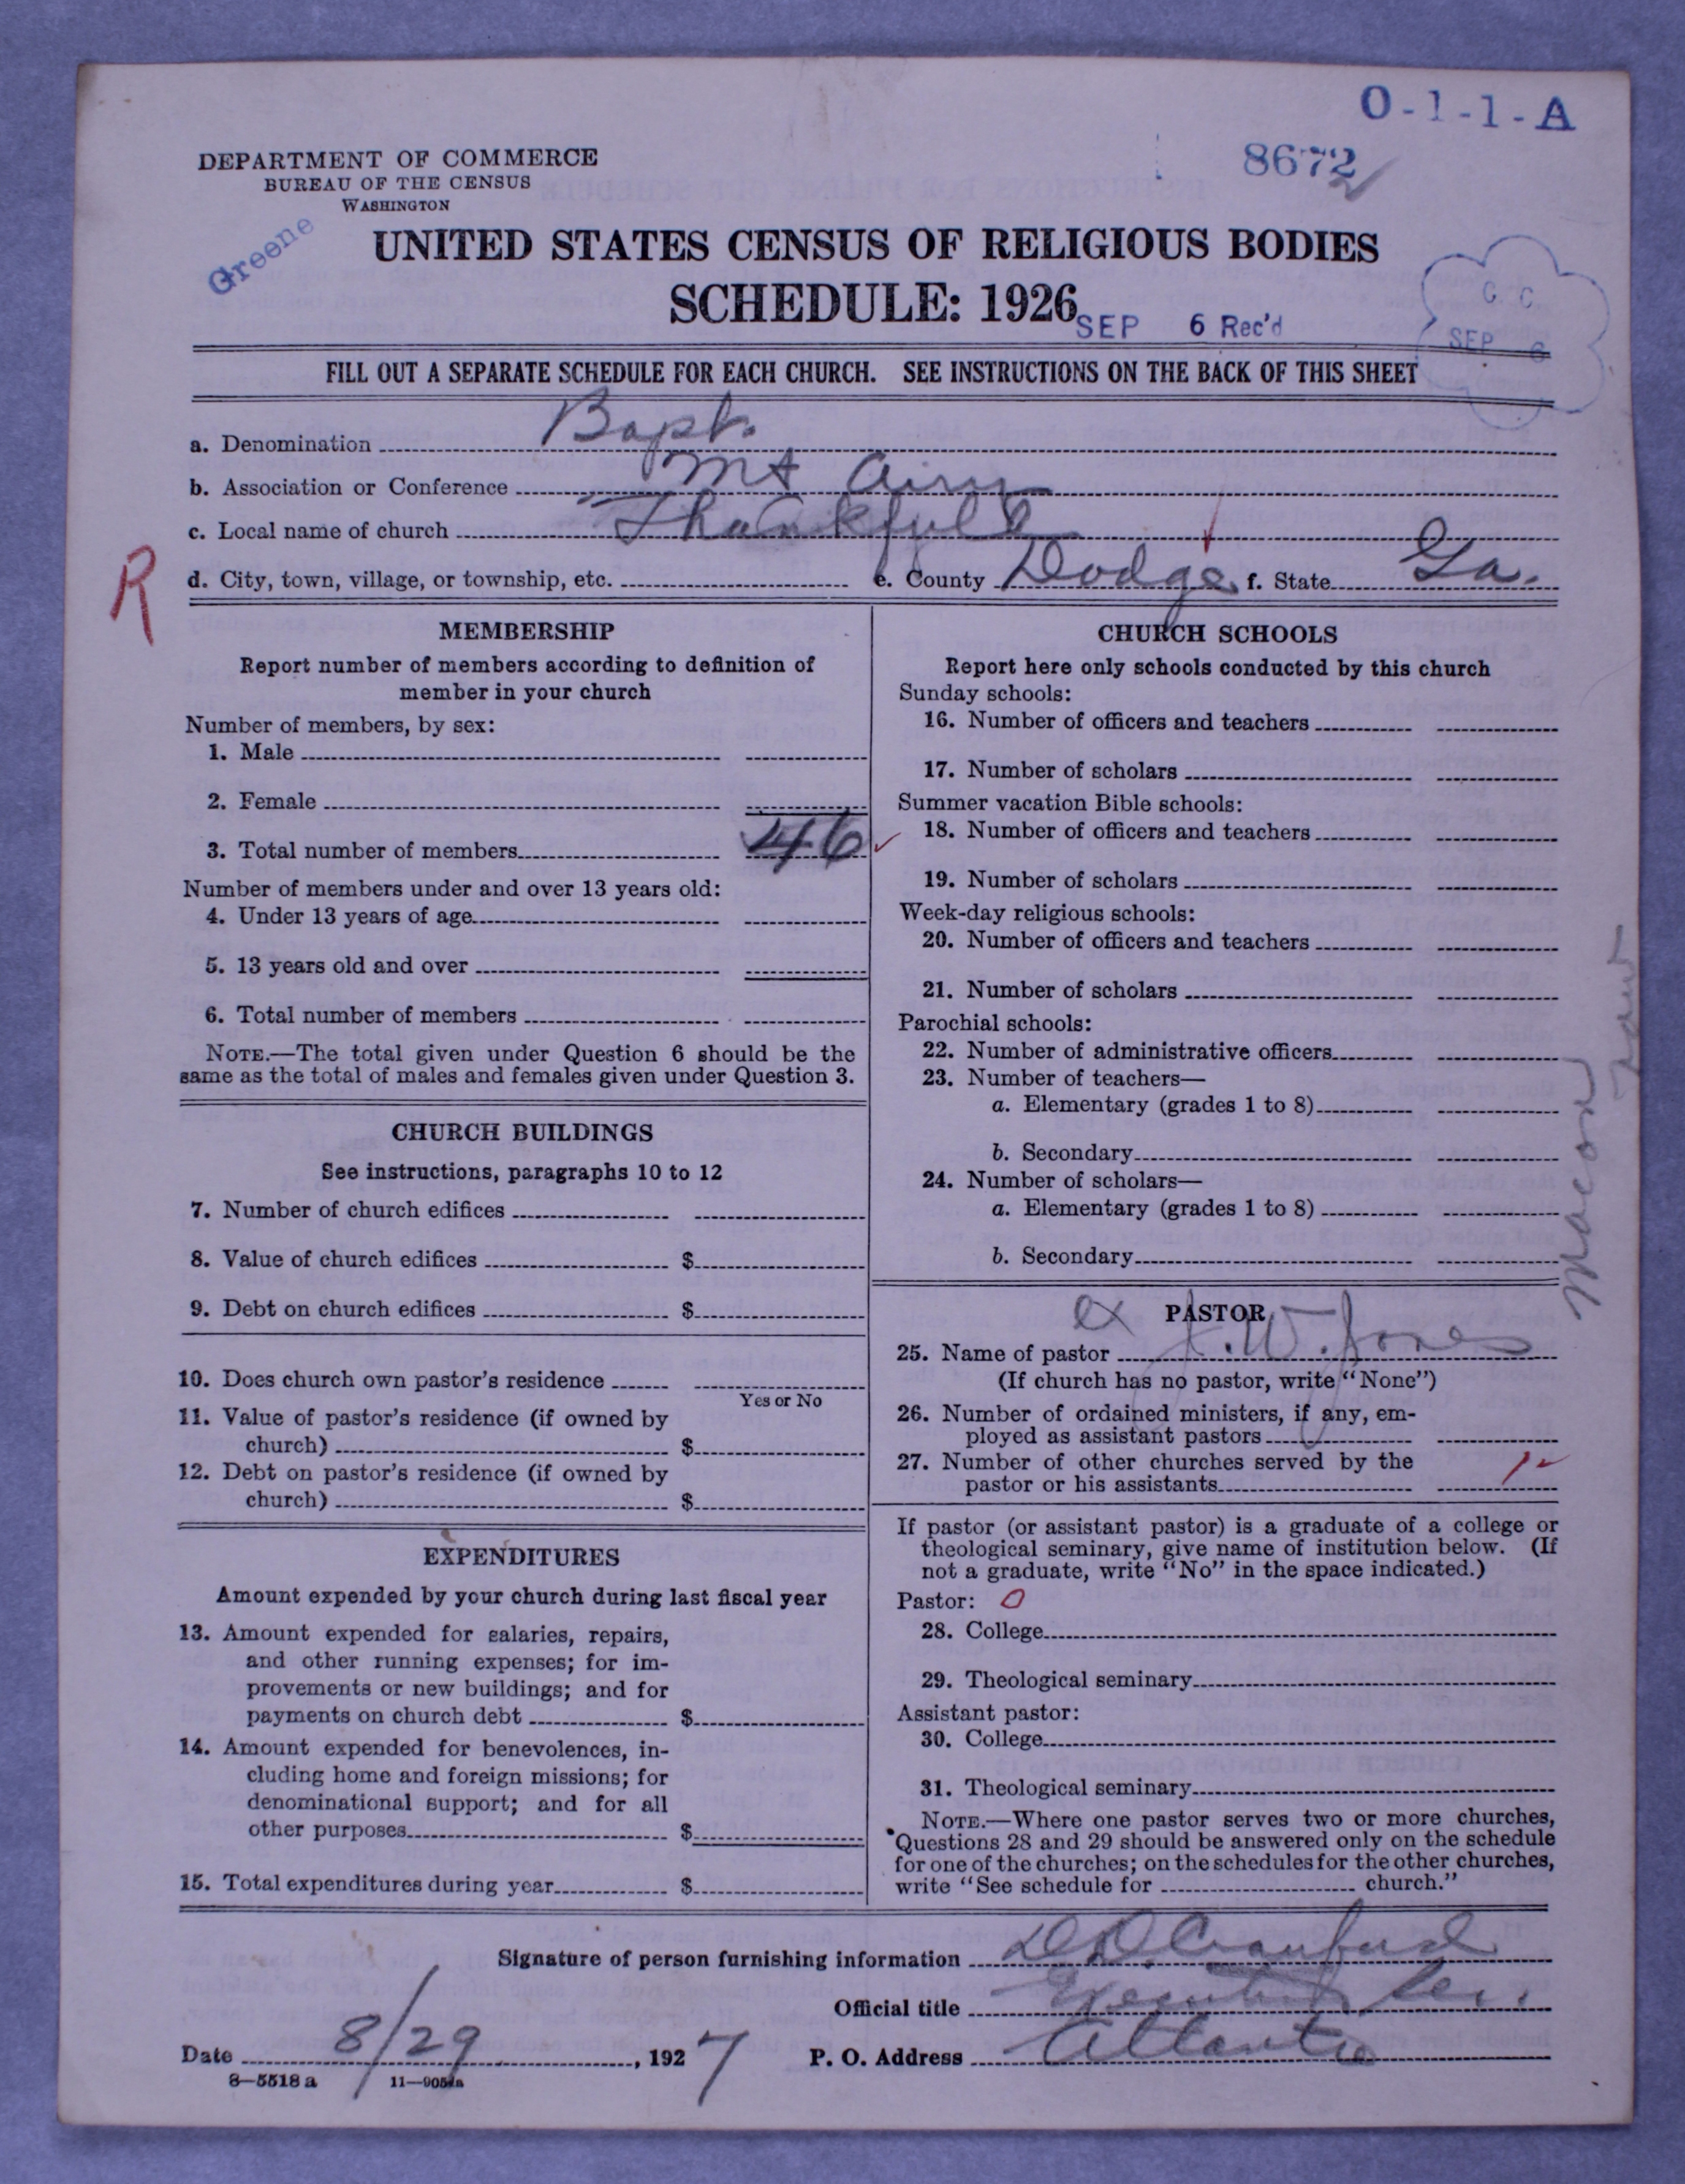 O-1-1-A
DEPARTMENT OF COMMERCE
BUREAU OF THE CENSUS
WASHINGTON
8672
Greene
UNITED STATES CENSUS OF RELIGIOUS BODIES
SCHEDULE: 1926
SEP 6 Rec'd
C C
SEP 6
FILL OUT A SEPARATE SCHEDULE FOR EACH CHURCH. SEE INSTRUCTIONS ON THE BACK OF THIS SHEET
a. Denomination Bapt.
b. Association or Conference Mt Airy
c. Local name of church Thankfull
R
d. City, town, village, or township, etc. e. County Dodge f. State Ga.
MEMBERSHIP
Report number of members according to definition of
member in your church
Number of members, by sex:
1. Male
2. Female
3. Total number of members 46
Number of members under and over 13 years old:
4. Under 13 years of age
5. 13 years old and over
6. Total number of members
NOTE.—The total given under Question 6 should be the
same as the total of males and females given under Question 3.
CHURCH BUILDINGS
See instructions, paragraphs 10 to 12
7. Number of church edifices
8. Value of church edifices $
9. Debt on church edifices $
10. Does church own pastor's residence
Yes or No
11. Value of pastor's residence (if owned by
church) $
12. Debt on pastor's residence (if owned by
church) $
EXPENDITURES
Amount expended by your church during last fiscal year
13. Amount expended for salaries, repairs,
and other running expenses; for im-
provements or new buildings; and for
payments on church debt $
14. Amount expended for benevolences, in-
cluding home and foreign missions; for
denominational support; and for all
other purposes $
15. Total expenditures during year $
CHURCH SCHOOLS
Report here only schools conducted by this church
Sunday schools:
16. Number of officers and teachers
17. Number of scholars
Summer vacation Bible schools:
18. Number of officers and teachers
19. Number of scholars
Week-day religious schools:
20. Number of officers and teachers
21. Number of scholars
Parochial schools:
22. Number of administrative officers
23. Number of teachers—
a. Elementary (grades 1 to 8)
b. Secondary
24. Number of scholars—
a. Elementary (grades 1 to 8)
b. Secondary
Macon
PASTOR
25. Name of pastor J. W. Jones
(If church has no pastor, write "None")
26. Number of ordained ministers, if any, em-
ployed as assistant pastors
27. Number of other churches served by the
pastor or his assistants 1
If pastor (or assistant pastor) is a graduate of a college or
theological seminary, give name of institution below. (If
not a graduate, write "No" in the space indicated.)
Pastor: 0
28. College
29. Theological seminary
Assistant pastor:
30. College
31. Theological seminary
NOTE.—Where one pastor serves two or more churches,
Questions 28 and 29 should be answered only on the schedule
for one of the churches; on the schedules for the other churches,
write "See schedule for church."
Signature of person furnishing information
Official title Executive Sec.
Date 8/29, 1927 P. O. Address Atlanta
8-5518 a 11-9051a